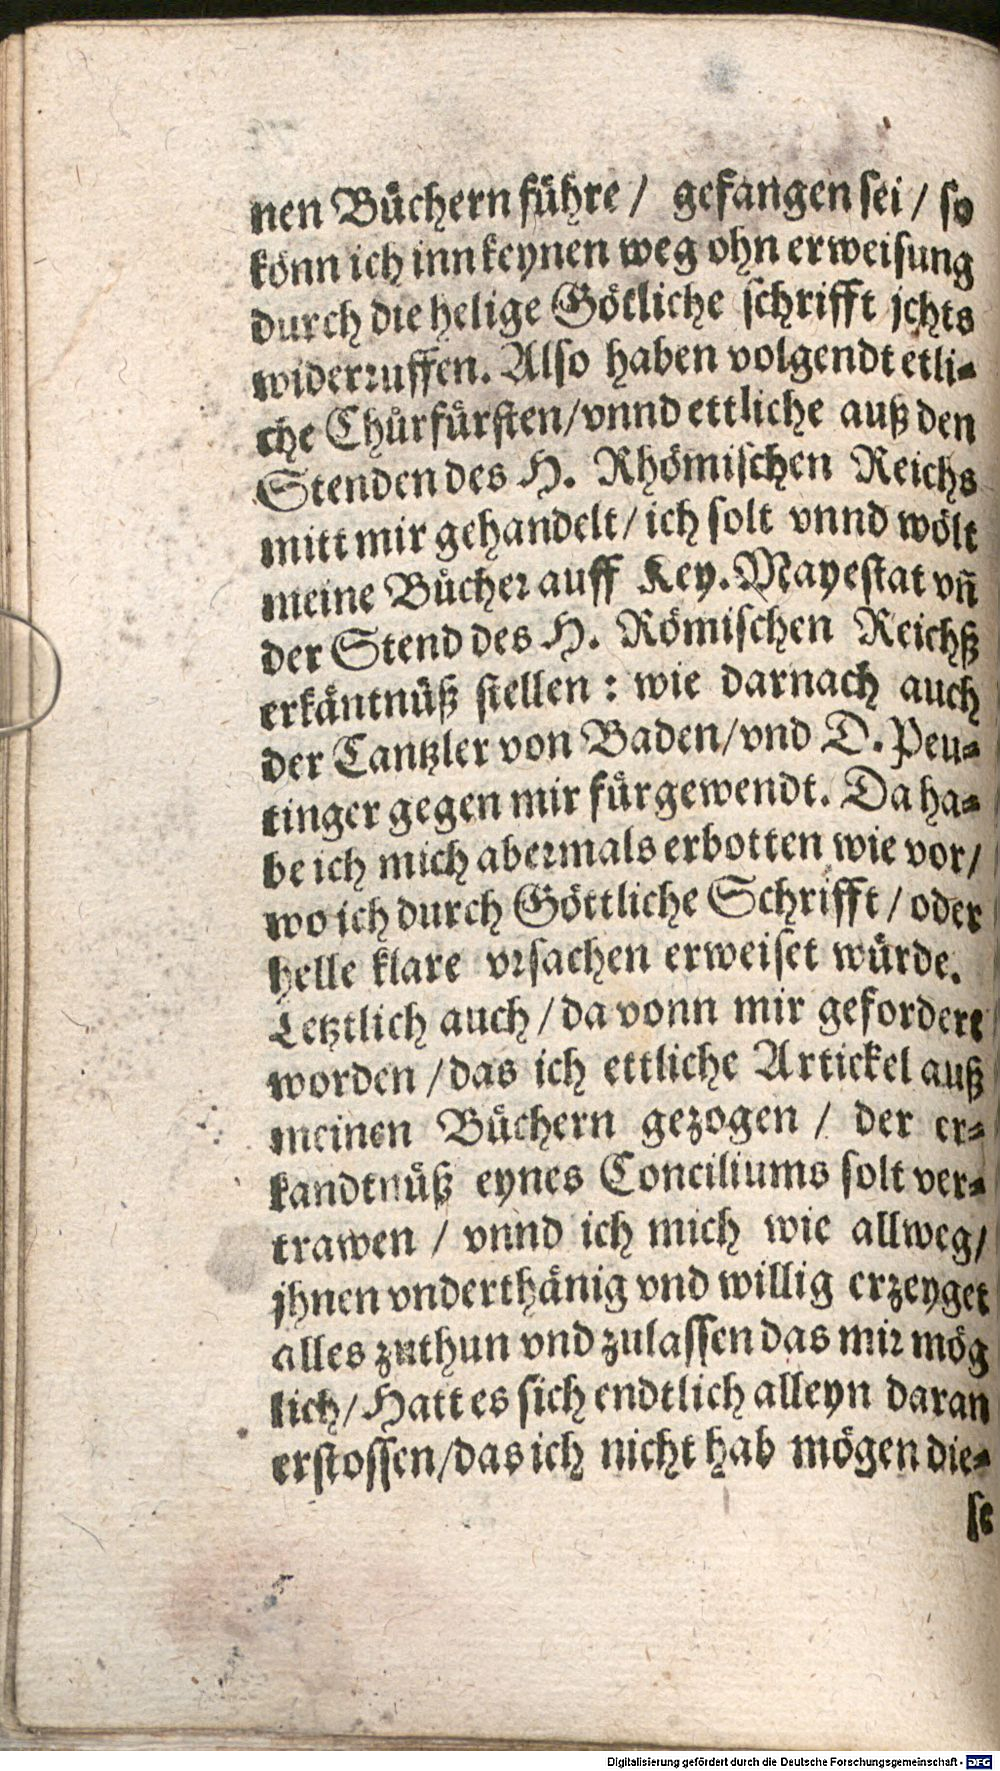 nen Bůchern führe / gefangen sei / so
könn ich inn keynen weg ohn erweisung
durch die helige Götliche schrifft jchts
widerruffen. Also haben volgendt etli⸗
che Chůrfürsten/vnnd ettliche auß den
Stenden des H. Rhömischen Reichs
mitt mir gehandelt/ich solt vnnd wölt
meine Bůcher auff Key. Mayestat vñ
der Stend des H. Römischen Reichß
erkäntnüß stellen : wie darnach auch
der Cantzler von Baden/vnd D. Peu⸗
tinger gegen mir fürgewendt. Da ha⸗
be ich mich abermals erbotten wie vor/
wo ich durch Göttliche Schrifft / oder
helle klare vrsachen erweiset würde.
Letztlich auch / da vonn mir gefordert
worden / das ich ettliche Artickel auß
meinen Bůchern gezogen / der er⸗
kandtnüß eynes Conciliums solt ver⸗
trawen / vnnd ich mich wie allweg/
jhnen vnderthänig vnd willig erzeyget
alles zuthun vnd zulassen das mir mög
lich/ Hatt es sich endtlich alleyn daran
erstossen/das ich nicht hab mögen die⸗
se
Digitalisierung gefördert durch die Deutsche Forschungsgemeinschaft - DFG